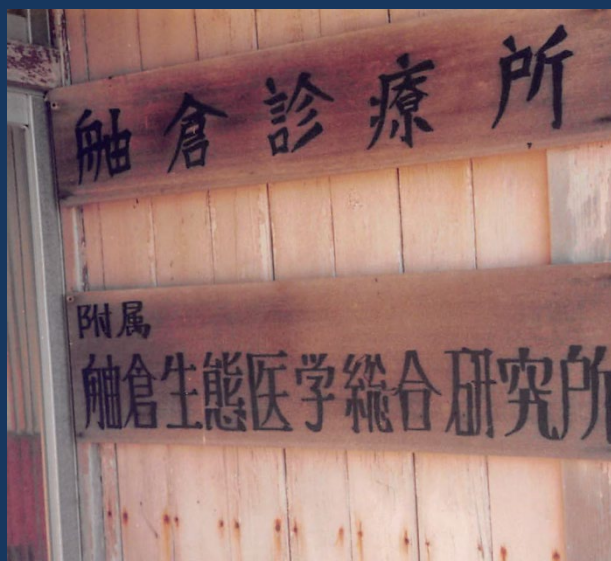 舳倉診療所
附属
舳倉生態医学総合研究所